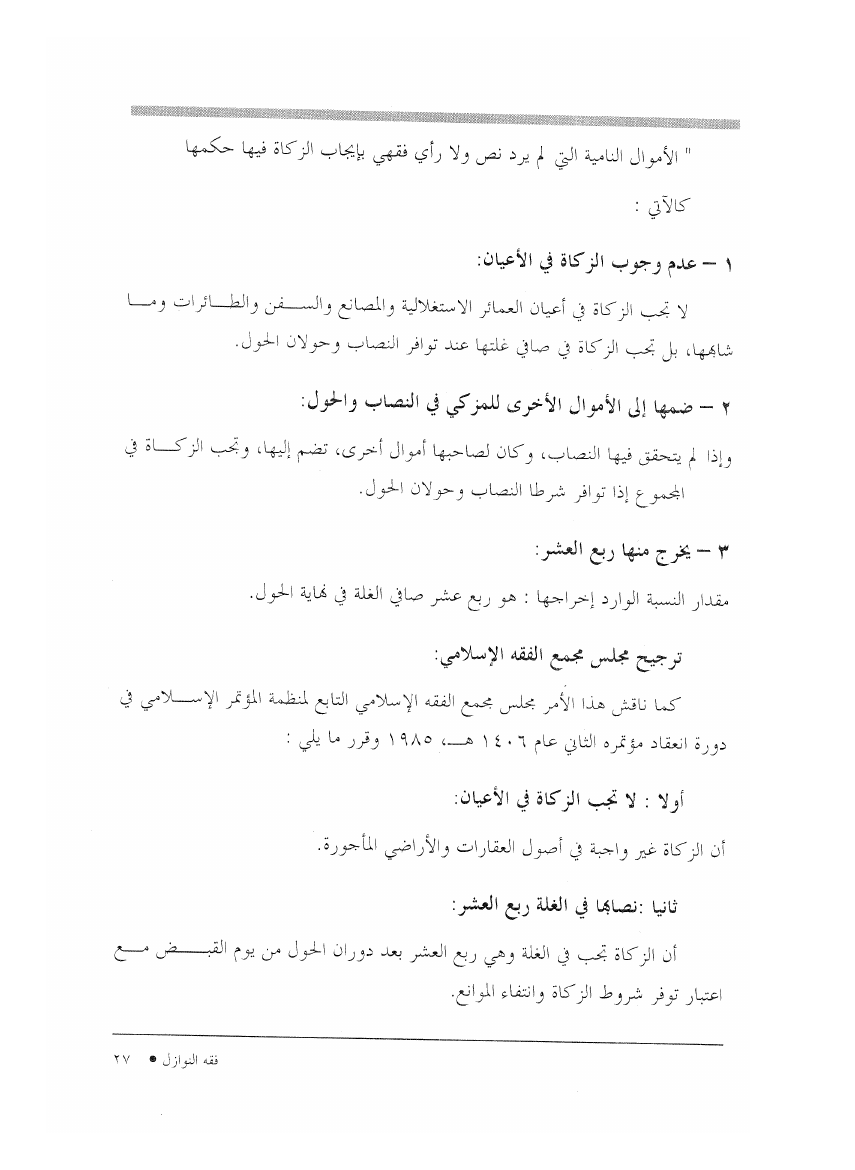 " الأموال النامية التي لم يرد نص ولا رأي فقهي بإيجاب الزكاة فيها حكمها
كالآتي :
١ – عدم وجوب الزكاة في الأعيان:
لا تجب الزكاة في أعيان العمائر الاستغلالية والمصانع والسفن والطائرات وما
شابهها، بل تجب الزكاة في صافي غلتها عند توافر النصاب وحولان الحول.
٢ – ضمها إلى الأموال الأخرى للمزكي في النصاب والحول:
وإذا لم يتحقق فيها النصاب، وكان لصاحبها أموال أخرى، تضم إليها، وتجب الزكاة في
المجموع إذا توافر شرطا النصاب وحولان الحول.
٣ – يخرج منها ربع العشر:
مقدار النسبة الوارد إخراجها : هو ربع عشر صافي الغلة في نهاية الحول.
ترجيح مجلس مجمع الفقه الإسلامي:
كما ناقش هذا الأمر مجلس مجمع الفقه الإسلامي التابع لمنظمة المؤتمر الإسلامي في
دورة انعقاد مؤتمره الثاني عام ١٤٠٦ هـ، ١٩٨٥ وقرر ما يلي :
أولا : لا تجب الزكاة في الأعيان:
أن الزكاة غير واجبة في أصول العقارات والأراضي المأجورة.
ثانيا :نصابها في الغلة ربع العشر:
أن الزكاة تجب في الغلة وهي ربع العشر بعد دوران الحول من يوم القبض مع
اعتبار توفر شروط الزكاة وانتفاء الموانع.
فقه النوازل ● ٢٧